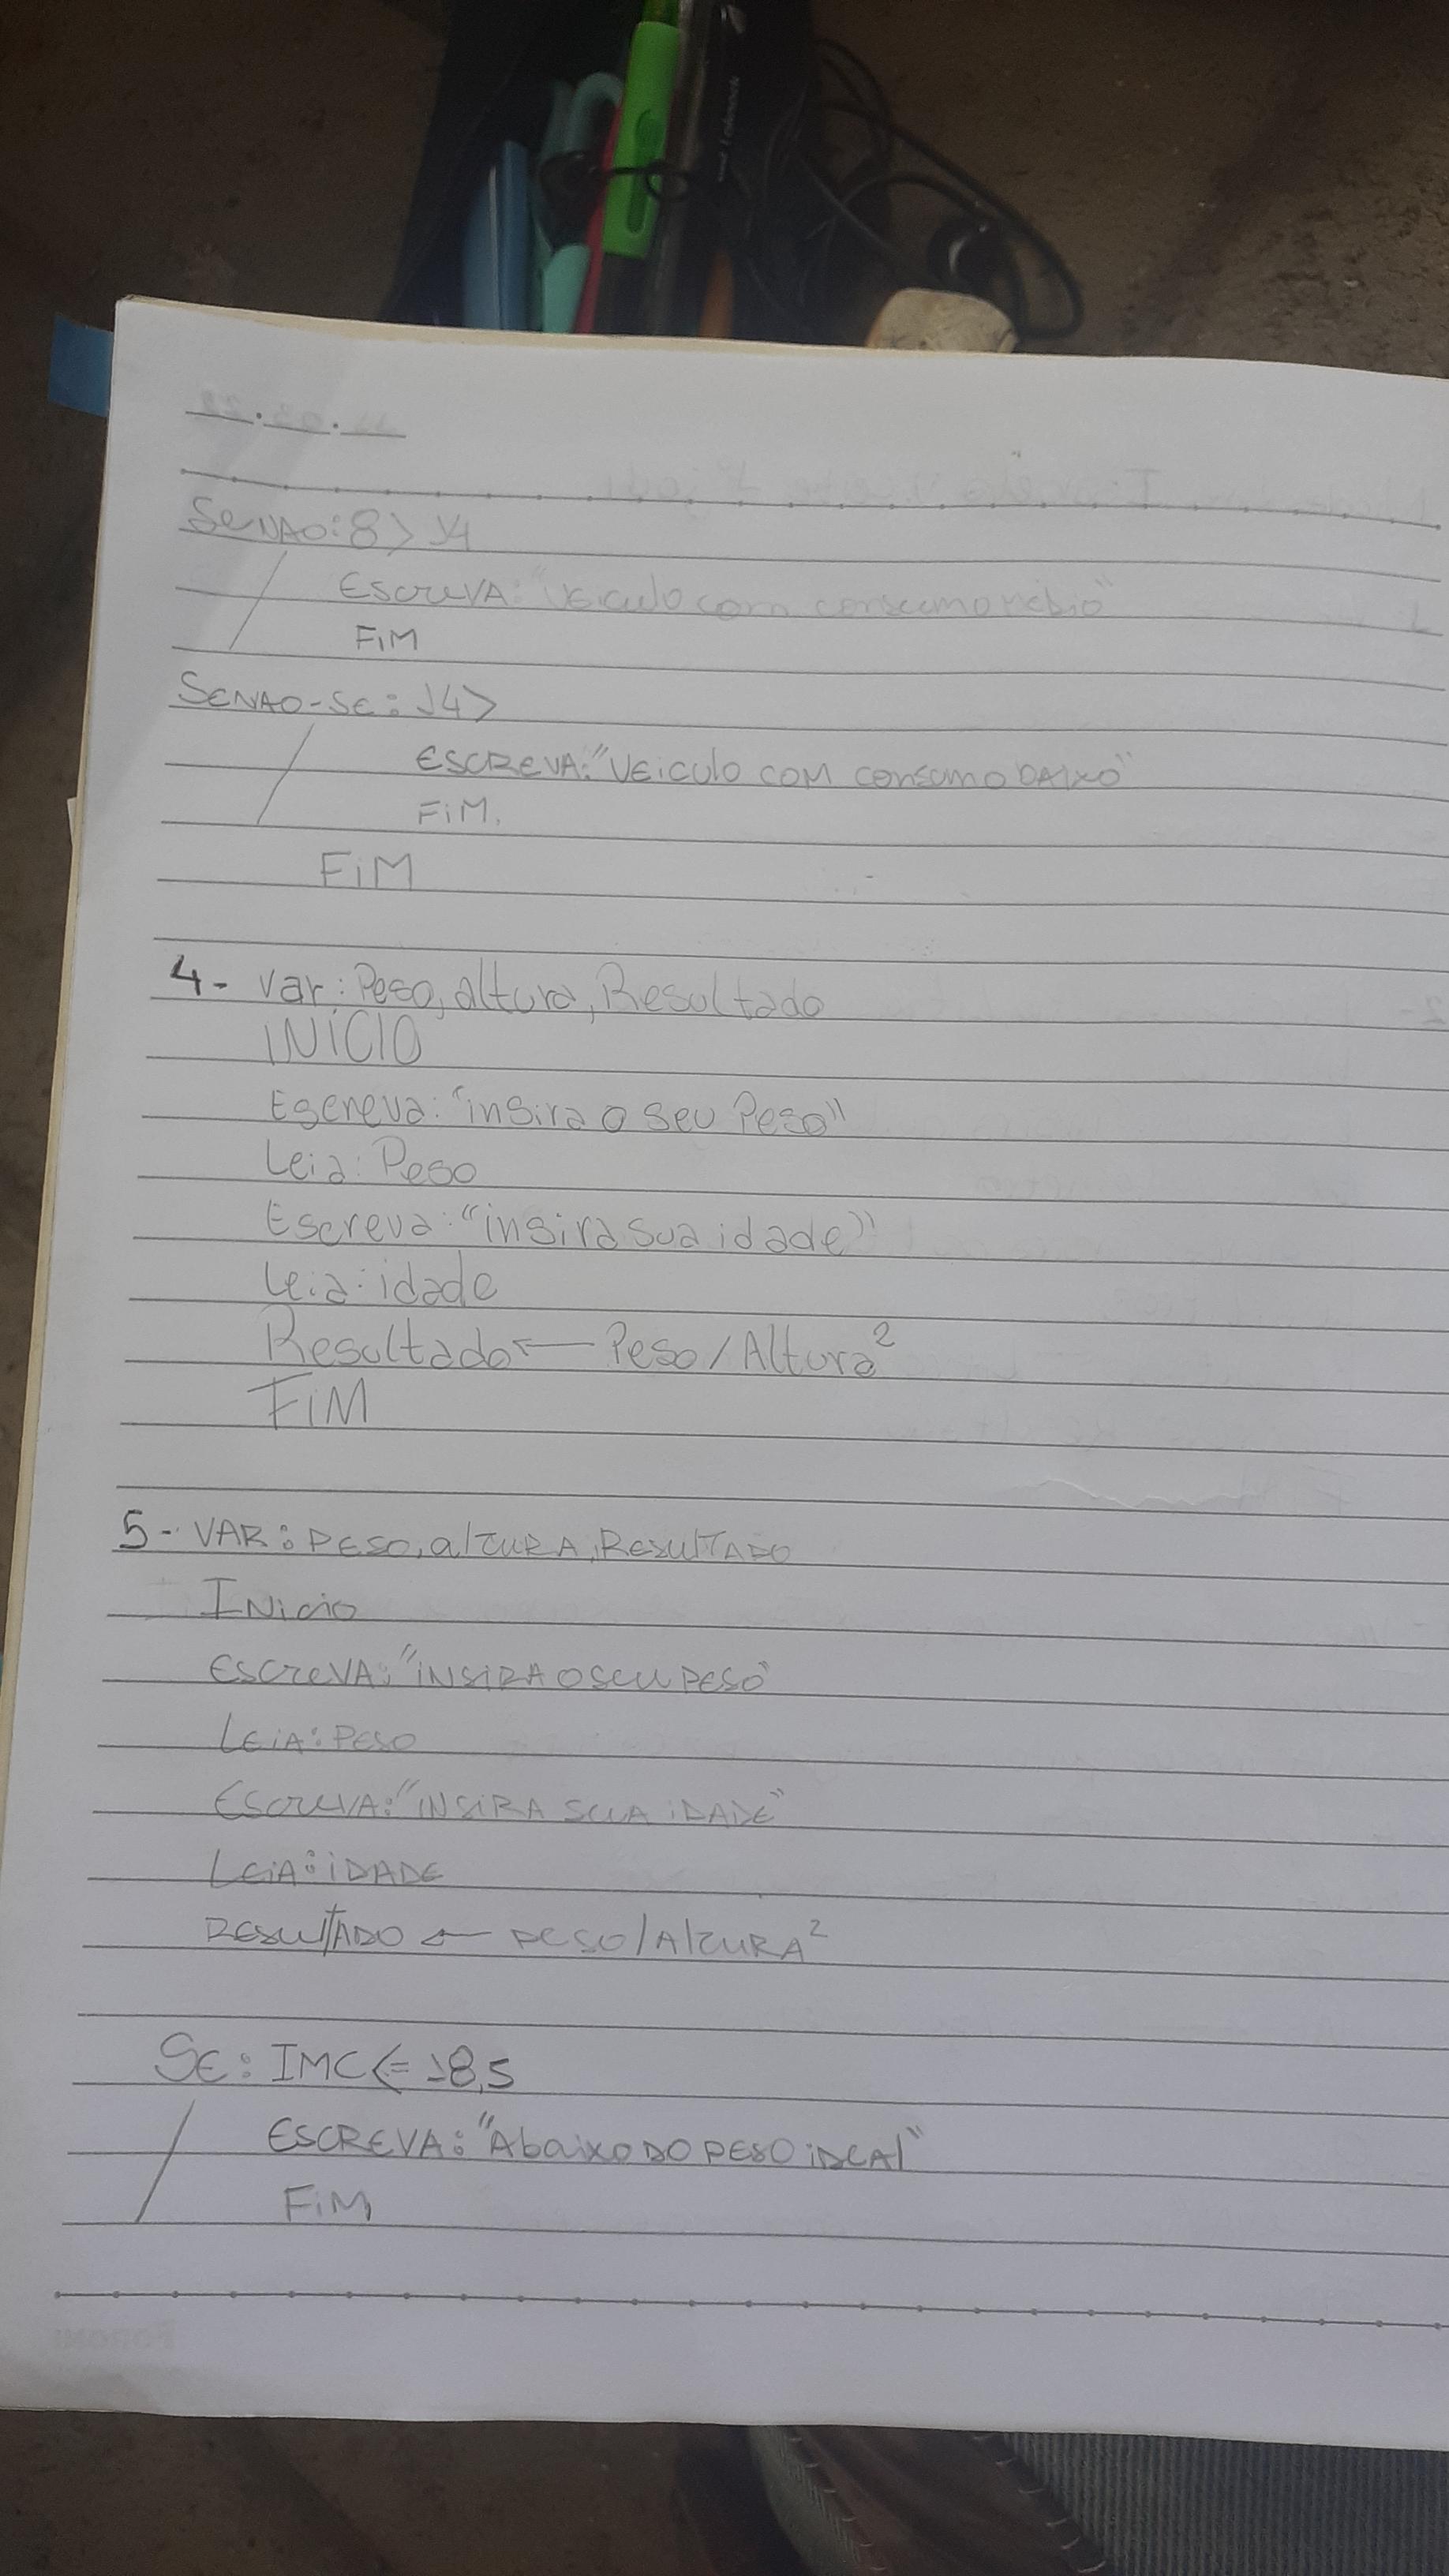 SeNAO: 8 > 14
EscreVA: "Veiculo com consumo
FiM
SENAO-SE: 14>
ESCREVA: "VEiculo COM consumo BAIXO"
FiM.
FiM
4- Var: Peso, altura, Resultado
INÍCIO
Escreva: "insira o seu Peso"
Leia: Peso
Escreva: "insira sua idade"
Leia: idade
Resultado ← Peso / Altura²
FiM
5- VAR: PESO, alTURA, ResulTADO
INicio
EscreVA: "iNSiRA O seu PESO"
LEiA: PESO
EscreVA: "INSiRA SUA iDADE"
LEiA: iDADE
RESulTADO ← PESO/AlTURA²
SE: IMC <= 18,5
ESCREVA: "Abaixo DO PESO iDEAl"
FiM